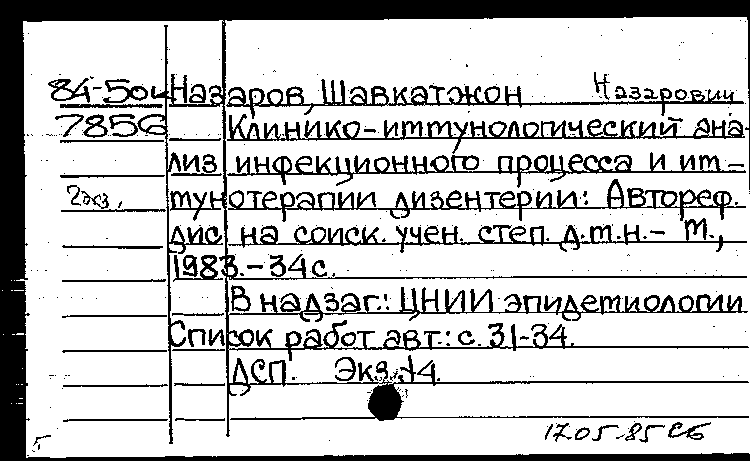 84-5он Назаров, Шавкатжон Назарович
7856 Клинико-иммунологический ана-
лиз инфекционного процесса и им-
2экз. мунотерапии дизентерии: Автореф.
дис. на соиск. учен. степ. д.м.н.- М.,
1983.-34с.
В надзаг.: ЦНИИ эпидемиологии
Список работ авт.: с. 31-34.
ДСП. Экз. 14.
17.05.85 СБ